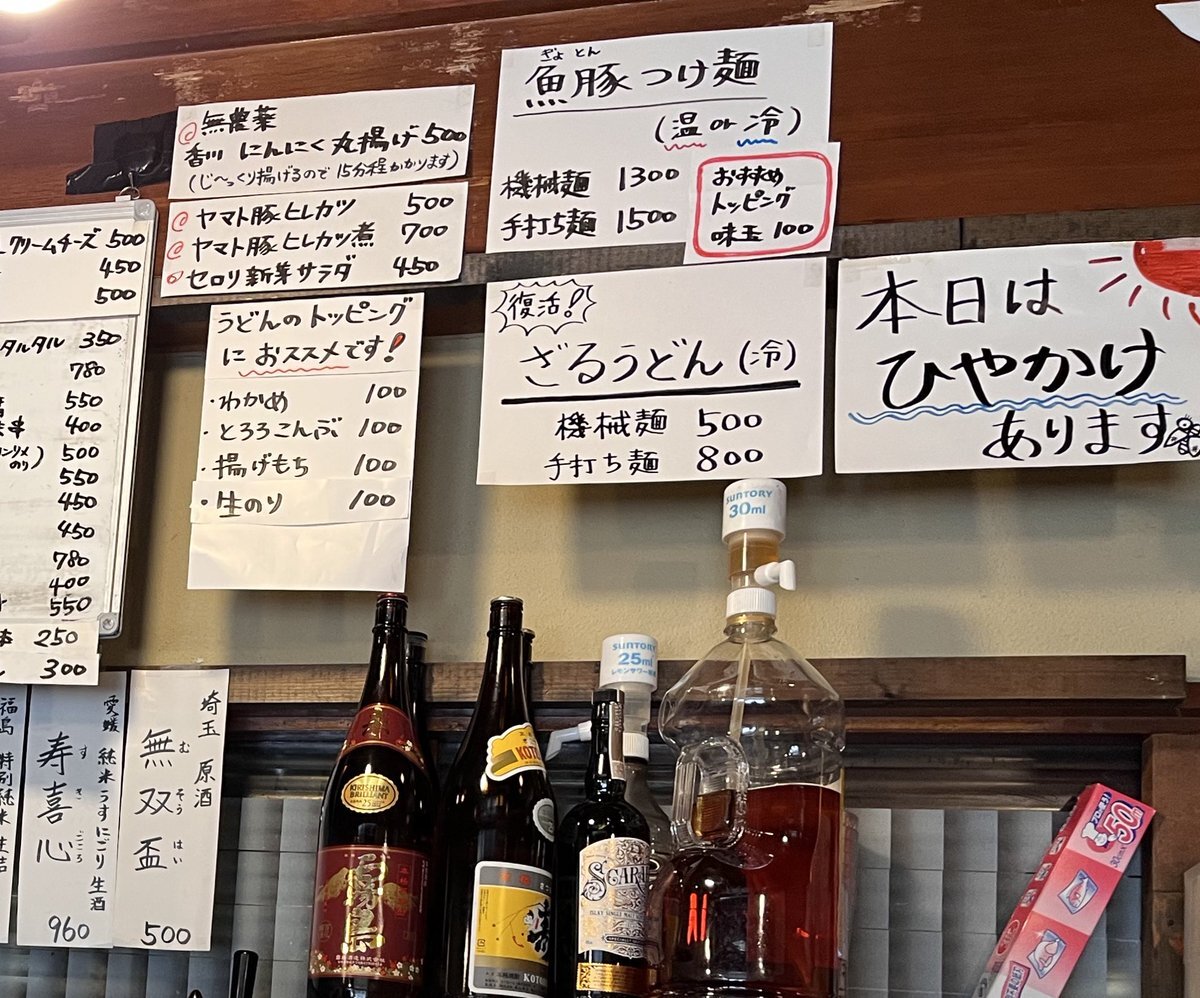 無農薬
香川 にんにく丸揚げ 500
(じ〜っくり揚げるので 15分程かかります)
ヤマト豚ヒレカツ 500
ヤマト豚ヒレカツ煮 700
セロリ新芽サラダ 450
ぎょ とん
魚豚つけ麺
(温 or 冷)
機械麺 1300
手打ち麺 1500
おすすめ
トッピング
味玉 100
クリームチーズ 500
450
500
タルタル 350
780
550
串 400
のり) 500
550
450
450
780
400
550
250
300
うどんのトッピング
に おススメです!
・わかめ 100
・とろろこんぶ 100
・揚げもち 100
・生のり 100
復活!
ざるうどん(冷)
機械麺 500
手打ち麺 800
本日は
ひやかけ
あります
福島 特別純米 生詰
愛媛 純米うすにごり 生酒
寿喜心
す き ごころ
960
埼玉 原酒
無双盃
む そう はい
500
SUNTORY
30ml
SUNTORY
25ml
レモンサワー
KIRISHIMA
BRILLIANT
25
霧島
KOTO
ISLAY SINGLE MALT
50